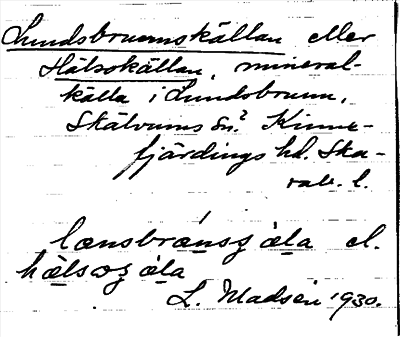 Lundsbrunnskällan eller
Hälsokällan, mineral-
källa i Lundsbrunn,
Skälvums sn? Kinne-
fjärdings hd. Ska-
rab. l.
el.
L. Madsén 1930.